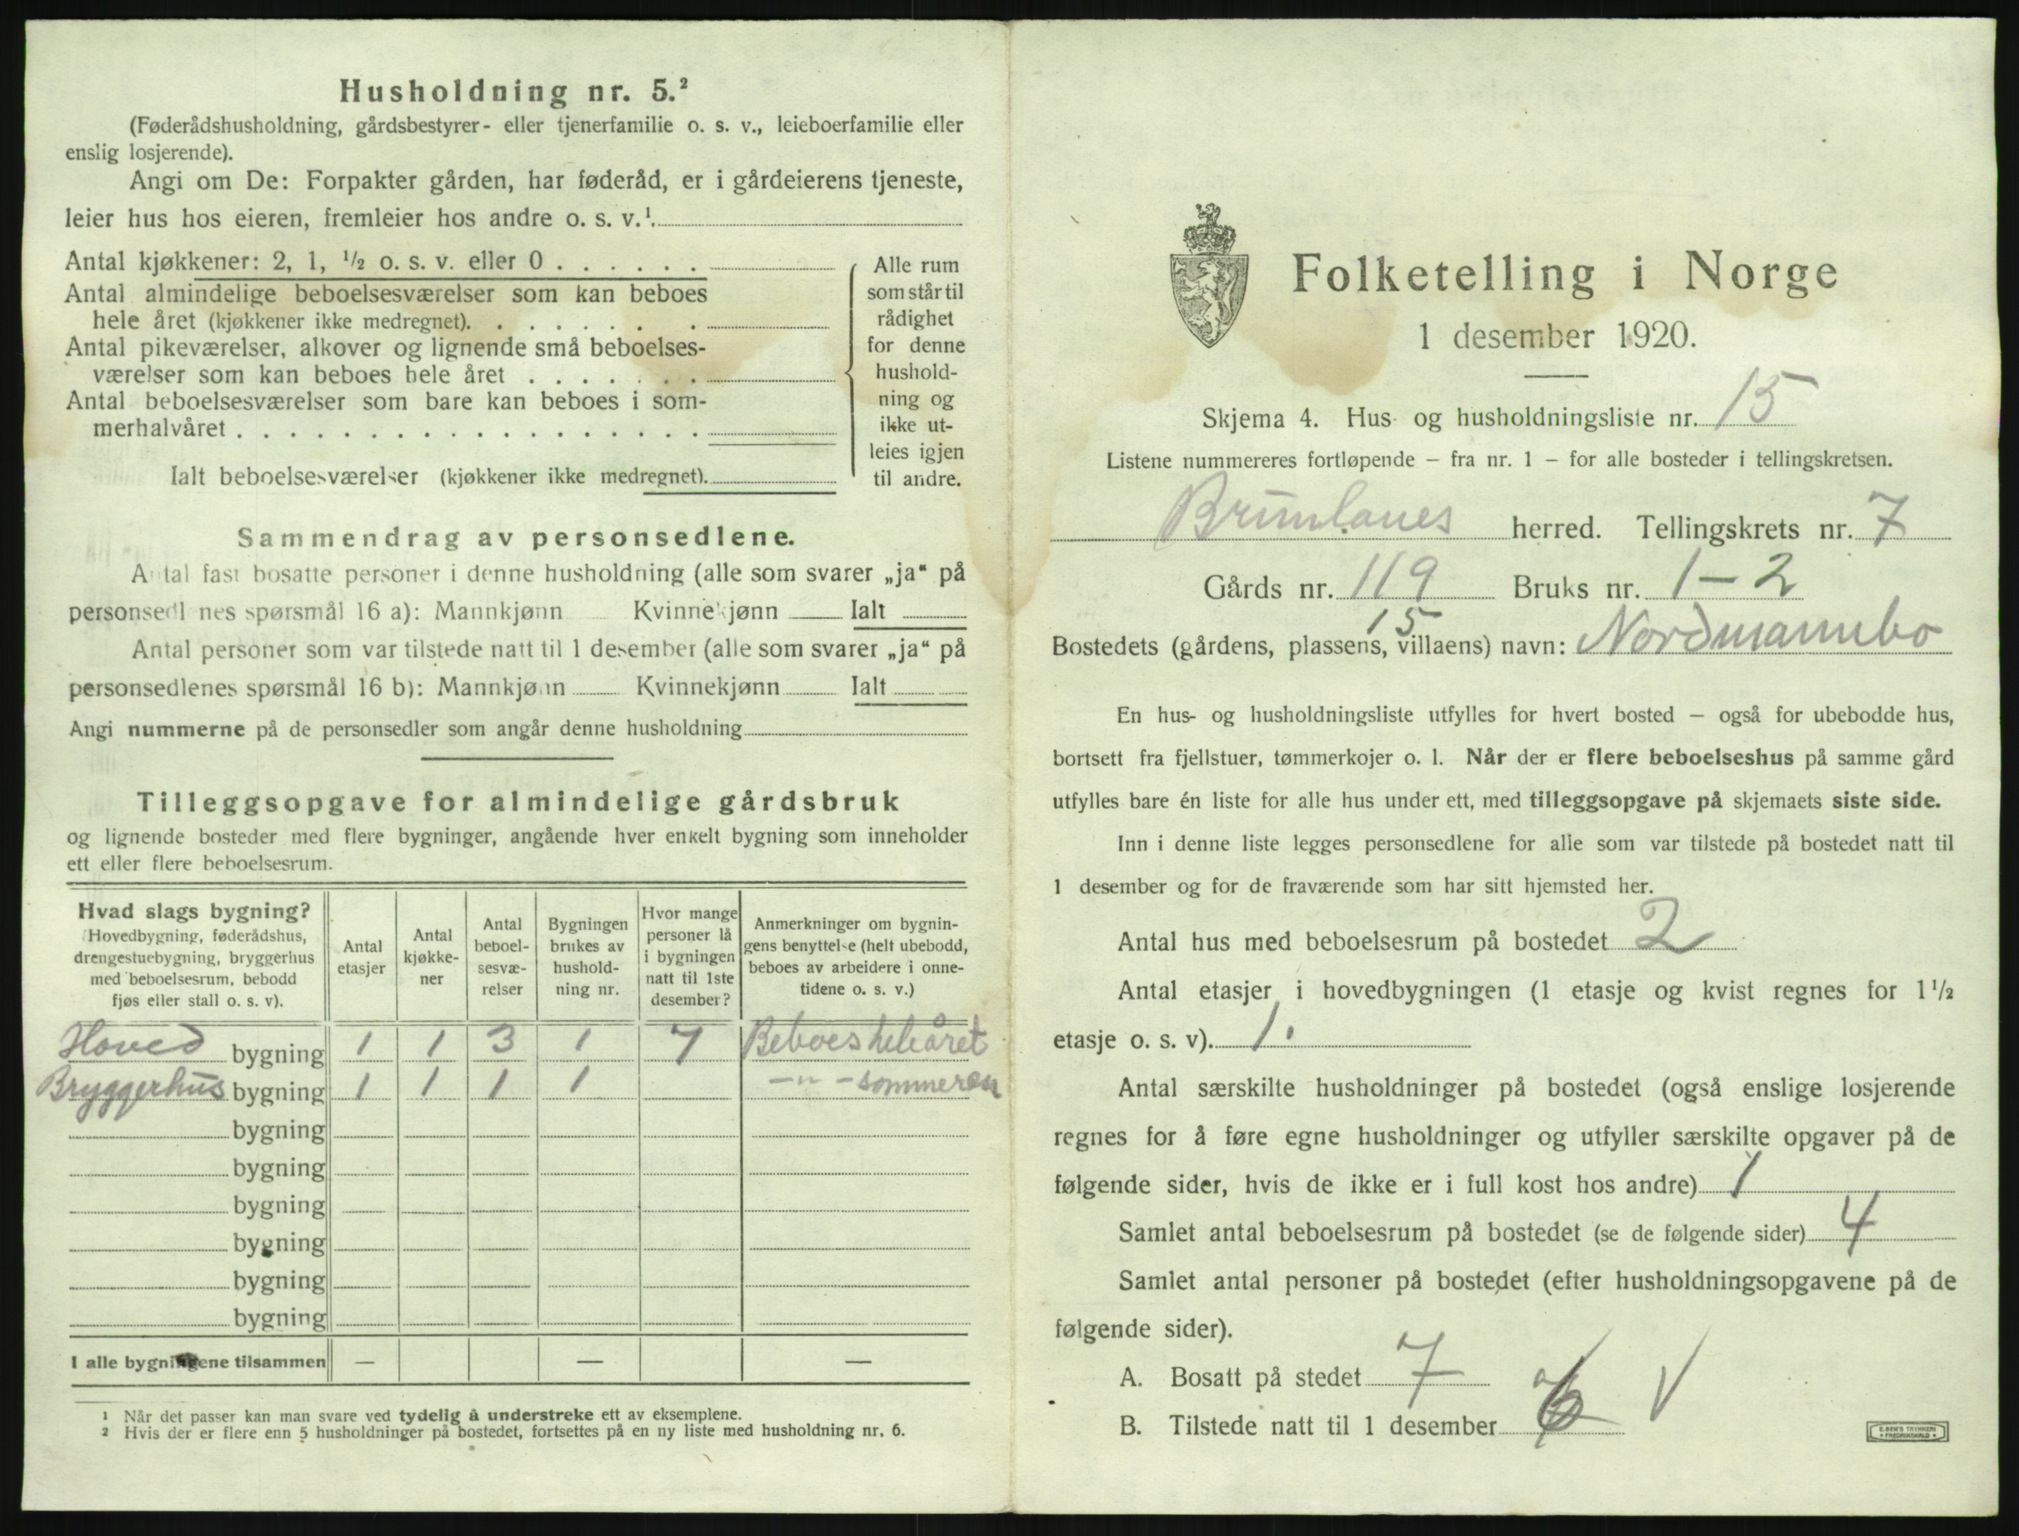 Husholdning nr. 5.²
(Føderådshusholdning, gårdsbestyrer- eller tjenerfamilie o. s. v., leieboerfamilie eller
enslig losjerende).
Angi om De: Forpakter gården, har føderåd, er i gårdeierens tjeneste,
leier hus hos eieren, fremleier hos andre o. s. v.¹.
Antal kjøkkener: 2, 1, ½ o. s. v. eller 0 . . . . . .
Antal almindelige beboelsesværelser som kan beboes
hele året (kjøkkener ikke medregnet). . . . . . . .
Antal pikeværelser, alkover og lignende små beboelses-
værelser som kan beboes hele året . . . . . . .
Antal beboelsesværelser som bare kan beboes i som-
merhalvåret . . . . . . . . . . . . . . . . . .
Ialt beboelsesværelser (kjøkkener ikke medregnet).
Alle rum
som står til
rådighet
for denne
hushold-
ning og
ikke ut-
leies igjen
til andre.
Sammendrag av personsedlene.
Antal fast bosatte personer i denne husholdning (alle som svarer „ja“ på
personsedlenes spørsmål 16 a): Mannkjønn Kvinnekjønn Ialt
Antal personer som var tilstede natt til 1 desember (alle som svarer „ja“ på
personsedlenes spørsmål 16 b): Mannkjønn Kvinnekjønn Ialt
Angi nummerne på de personsedler som angår denne husholdning
Tilleggsopgave for almindelige gårdsbruk
og lignende bosteder med flere bygninger, angående hver enkelt bygning som inneholder
ett eller flere beboelsesrum.
Hvad slags bygning?
(Hovedbygning, føderådshus,
drengestuebygning, bryggerhus
med beboelsesrum, bebodd
fjøs eller stall o. s. v).
Antal
etasjer
Antal
kjøkke-
ner
Antal
beboel-
sesvæ-
relser
Bygningen
brukes av
hushold-
ning nr.
Hvor mange
personer lå
i bygningen
natt til 1ste
desember?
Anmerkninger om bygnin-
gens benyttelse (helt ubebodd,
beboes av arbeidere i onne-
tidene o. s. v.)
Hoved bygning 1 1 3 1 7 Beboes hele året
Bryggerhus bygning 1 1 1 1 -"- sommeren
bygning
bygning
bygning
bygning
bygning
bygning
I alle bygningene tilsammen — — —
¹ Når det passer kan man svare ved tydelig å understreke ett av eksemplene.
² Hvis der er flere enn 5 husholdninger på bostedet, fortsettes på en ny liste med husholdning nr. 6.
Folketelling i Norge
1 desember 1920.
Skjema 4. Hus- og husholdningsliste nr. 15
Listene nummereres fortløpende – fra nr. 1 – for alle bosteder i tellingskretsen.
Brunlanes herred. Tellingskrets nr. 7
Gårds nr. 119 Bruks nr. 1-2
15
Bostedets (gårdens, plassens, villaens) navn: Nordmannebo
En hus- og husholdningsliste utfylles for hvert bosted – også for ubebodde hus,
bortsett fra fjellstuer, tømmerkojer o. l. Når der er flere beboelseshus på samme gård
utfylles bare én liste for alle hus under ett, med tilleggsopgave på skjemaets siste side.
Inn i denne liste legges personsedlene for alle som var tilstede på bostedet natt til
1 desember og for de fraværende som har sitt hjemsted her.
Antal hus med beboelsesrum på bostedet 2
Antal etasjer i hovedbygningen (1 etasje og kvist regnes for 1½
etasje o. s. v). 1.
Antal særskilte husholdninger på bostedet (også enslige losjerende
regnes for å føre egne husholdninger og utfyller særskilte opgaver på de
følgende sider, hvis de ikke er i full kost hos andre) 1
Samlet antal beboelsesrum på bostedet (se de følgende sider) 4
Samlet antal personer på bostedet (efter husholdningsopgavene på de
følgende sider).
A. Bosatt på stedet 7
B. Tilstede natt til 1 desember 6 V